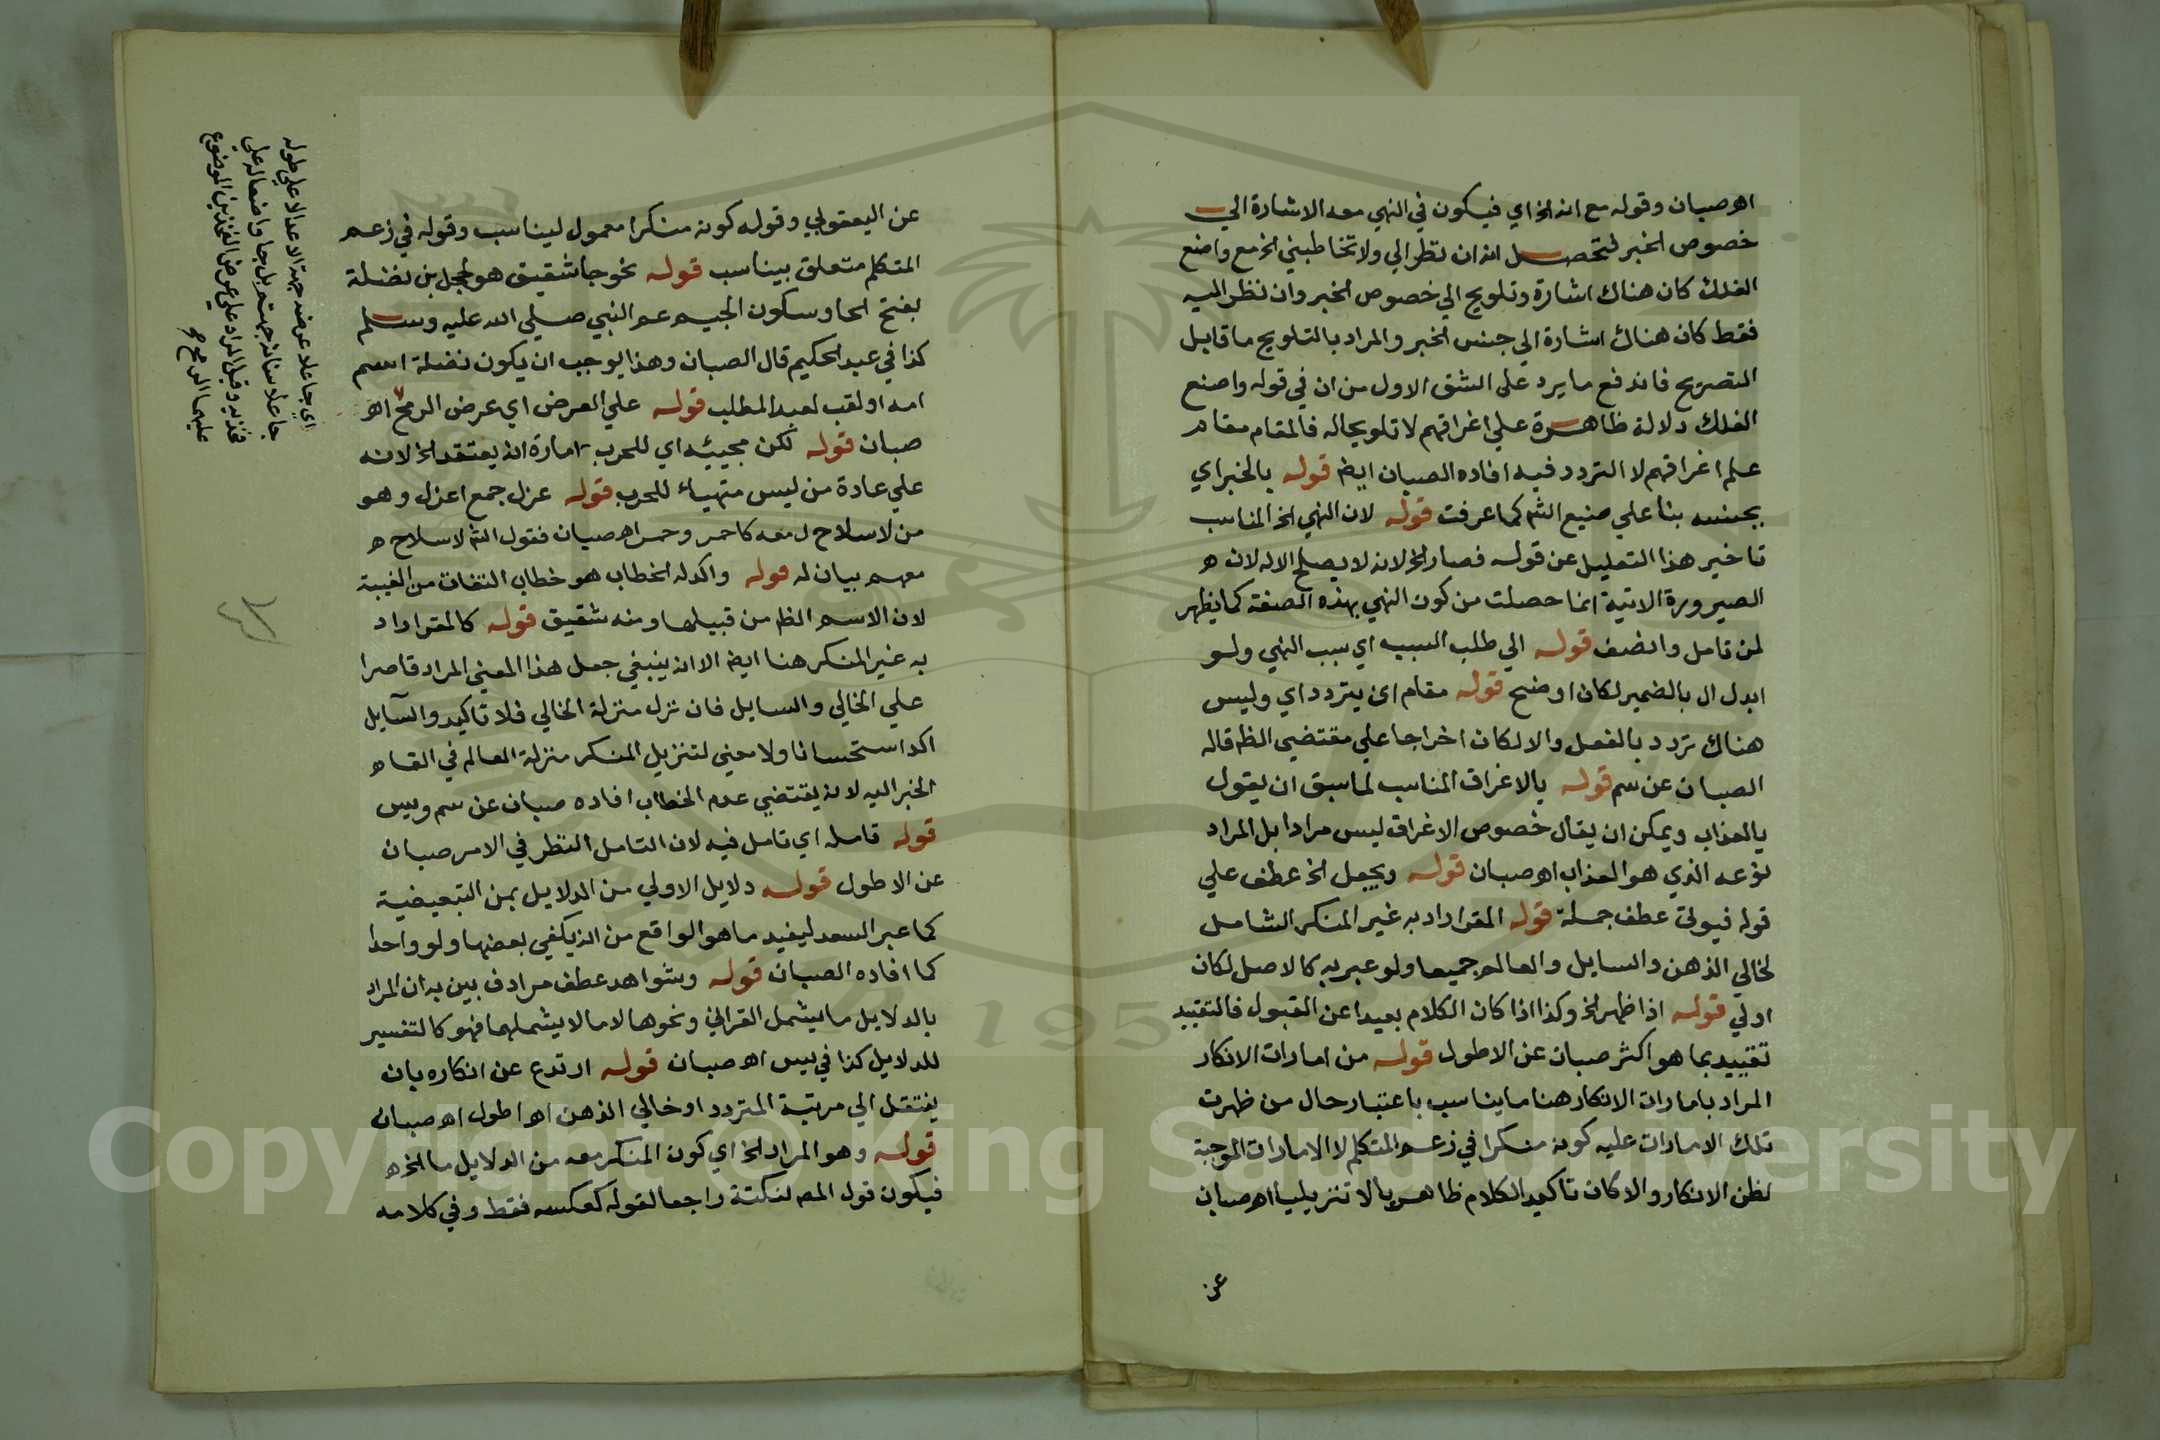 اهصبان وقوله مع انه الخ اي فيكون في النهي معه الاشارة الي
خصوص الخبر فتحصل انه ان نظر الي ولا تخاطبني الخ مع واصنع
الفلك كان هناك اشارة وتلويح الي خصوص الخبر وان نظر اليه
فقط كان هناك اشارة الي جنس الخبر والمراد بالتلويح ما قابل
التصريح فاندفع ما يرد علي الشق الاول من ان في قوله واصنع
الفلك دلالة ظاهرة علي اغراقهم لا تلويحا له فالمقام مقام
علم اغراقهم لا التردد فيه افاده الصبان ايض قوله بالخبر اي
بجنسه بنا علي صنيع الشم كما عرفت قوله لان النهي الخ المناسب
تاخير هذا التعليل عن قوله فصار الخ لانه لا يصلح الا له لان ه
الصيرورة الاتية انما حصلت من كون النهي بهذه الصفة كما يظهر
لمن تامل وانصف قوله الي طلب السبب اي سبب النهي ولو
ابدل ال بالضمير لكان اوضح قوله مقام ان يتردد اي وليس
هناك تردد بالفعل والا لكان اخراجا علي مقتضي الظ قاله
الصبان عن سم قوله بالاغراق المناسب لما سبق ان يقول
بالعذاب ويمكن ان يقال خصوص الاغراق ليس مرادا بل المراد
نوعه الذي هو العذاب اهصبان قوله ويجعل الخ عطف علي
قوله فيولق عطف جملة قوله المقر اراد به غير المنكر الشامل
لخالي الذهن والسايل والعالم جميعا ولو عبر به كالاصل لكان
اولي قوله اذا ظهر الخ وكذا اذا كان الكلام بعيدا عن القبول فالتقييد
تقييد بما هو اكثر صبان عن الاطول قوله من امارات الانكار
المراد بامارات الانكار هنا ما يناسب باعتبار حال من ظهرت
تلك الامارات عليه كونه منكرا في زعم المتكلم لا الامارات الموجبة
لظن الانكار والا كان تاكيد الكلام ظاهريا لا تنزيليا اهصبان
عن
عن اليعقوبي وقوله كونه منكرا معمول ليناسب وقوله في زعم
المتكلم متعلق بيناسب قوله نحو جا شقيق هو لحجل بن نضلة
بفتح الحا وسكون الجيم عم النبي صلي الله عليه وسلم
كذا في عبد الحكيم قال الصبان وهذا يوجب ان يكون نضلة اسم
امه او لقب لعبد المطلب قوله علي العرض اي عرض الرمح اه
صبان قوله لكن مجيئه اي للحرب امارة انه يعتقد الخ لانه
علي عادة من ليس متهيئا للحرب قوله عزل جمع اعزل وهو
من لا سلاح له معه كاحمر وحمر اهصبان فقول الشم لا سلاح ه
معهم بيان له قوله واكد له الخطاب هو خطاب التفات من الغيبة
لان الاسم الظ من قبيلها ومنه شقيق قوله كالمقر اراد
به غير المنكر هنا ايض الا انه ينبغي جعل هذا المعني المراد قاصرا
علي الخالي والسايل فان نزل منزلة الخالي فلا تاكيد والسآيل
اكد استحسانا ولا معني لتنزيل المنكر منزلة العالم في القاء
الخبر اليه لانه يقتضي عدم الخطاب افاده صبان عن سم ويس
قوله تامله اي تامل فيه لان التامل النظر في الامر صبان
عن الاطول قوله دلايل الاولي من الدلايل بمن التبعيضية
كما عبر السعد ليفيد ما هو الواقع من انه يكفي بعضها ولو واحدا
كما افاده الصبان قوله وشواهد عطف مرادف بين به ان المراد
بالدلايل ما يشمل القراين ونحوها لا ما لا يشملهما فهو كالتفسير
للدلايل كذا في يس اهصبان قوله ارتدع عن انكاره بان
ينتقل الي مرتبة المتردد او خالي الذهن اه اطول اهصبان
قوله وهو المراد الخ اي كون المنكر معه من الدلايل ما الخ ه
فيكون قول المص لنكتة راجعا لقوله كعكسه فقط وفي كلامه
اي جاعلا عرضه جهة الاعدا لا علي طوله
جاعلا سنانه جهتهم بل جا واضعا له علي
فخذيه وقيل المراد علي عرض الفخذين الموضوع
عليهما الرمح
Copyright © King Saud University
195